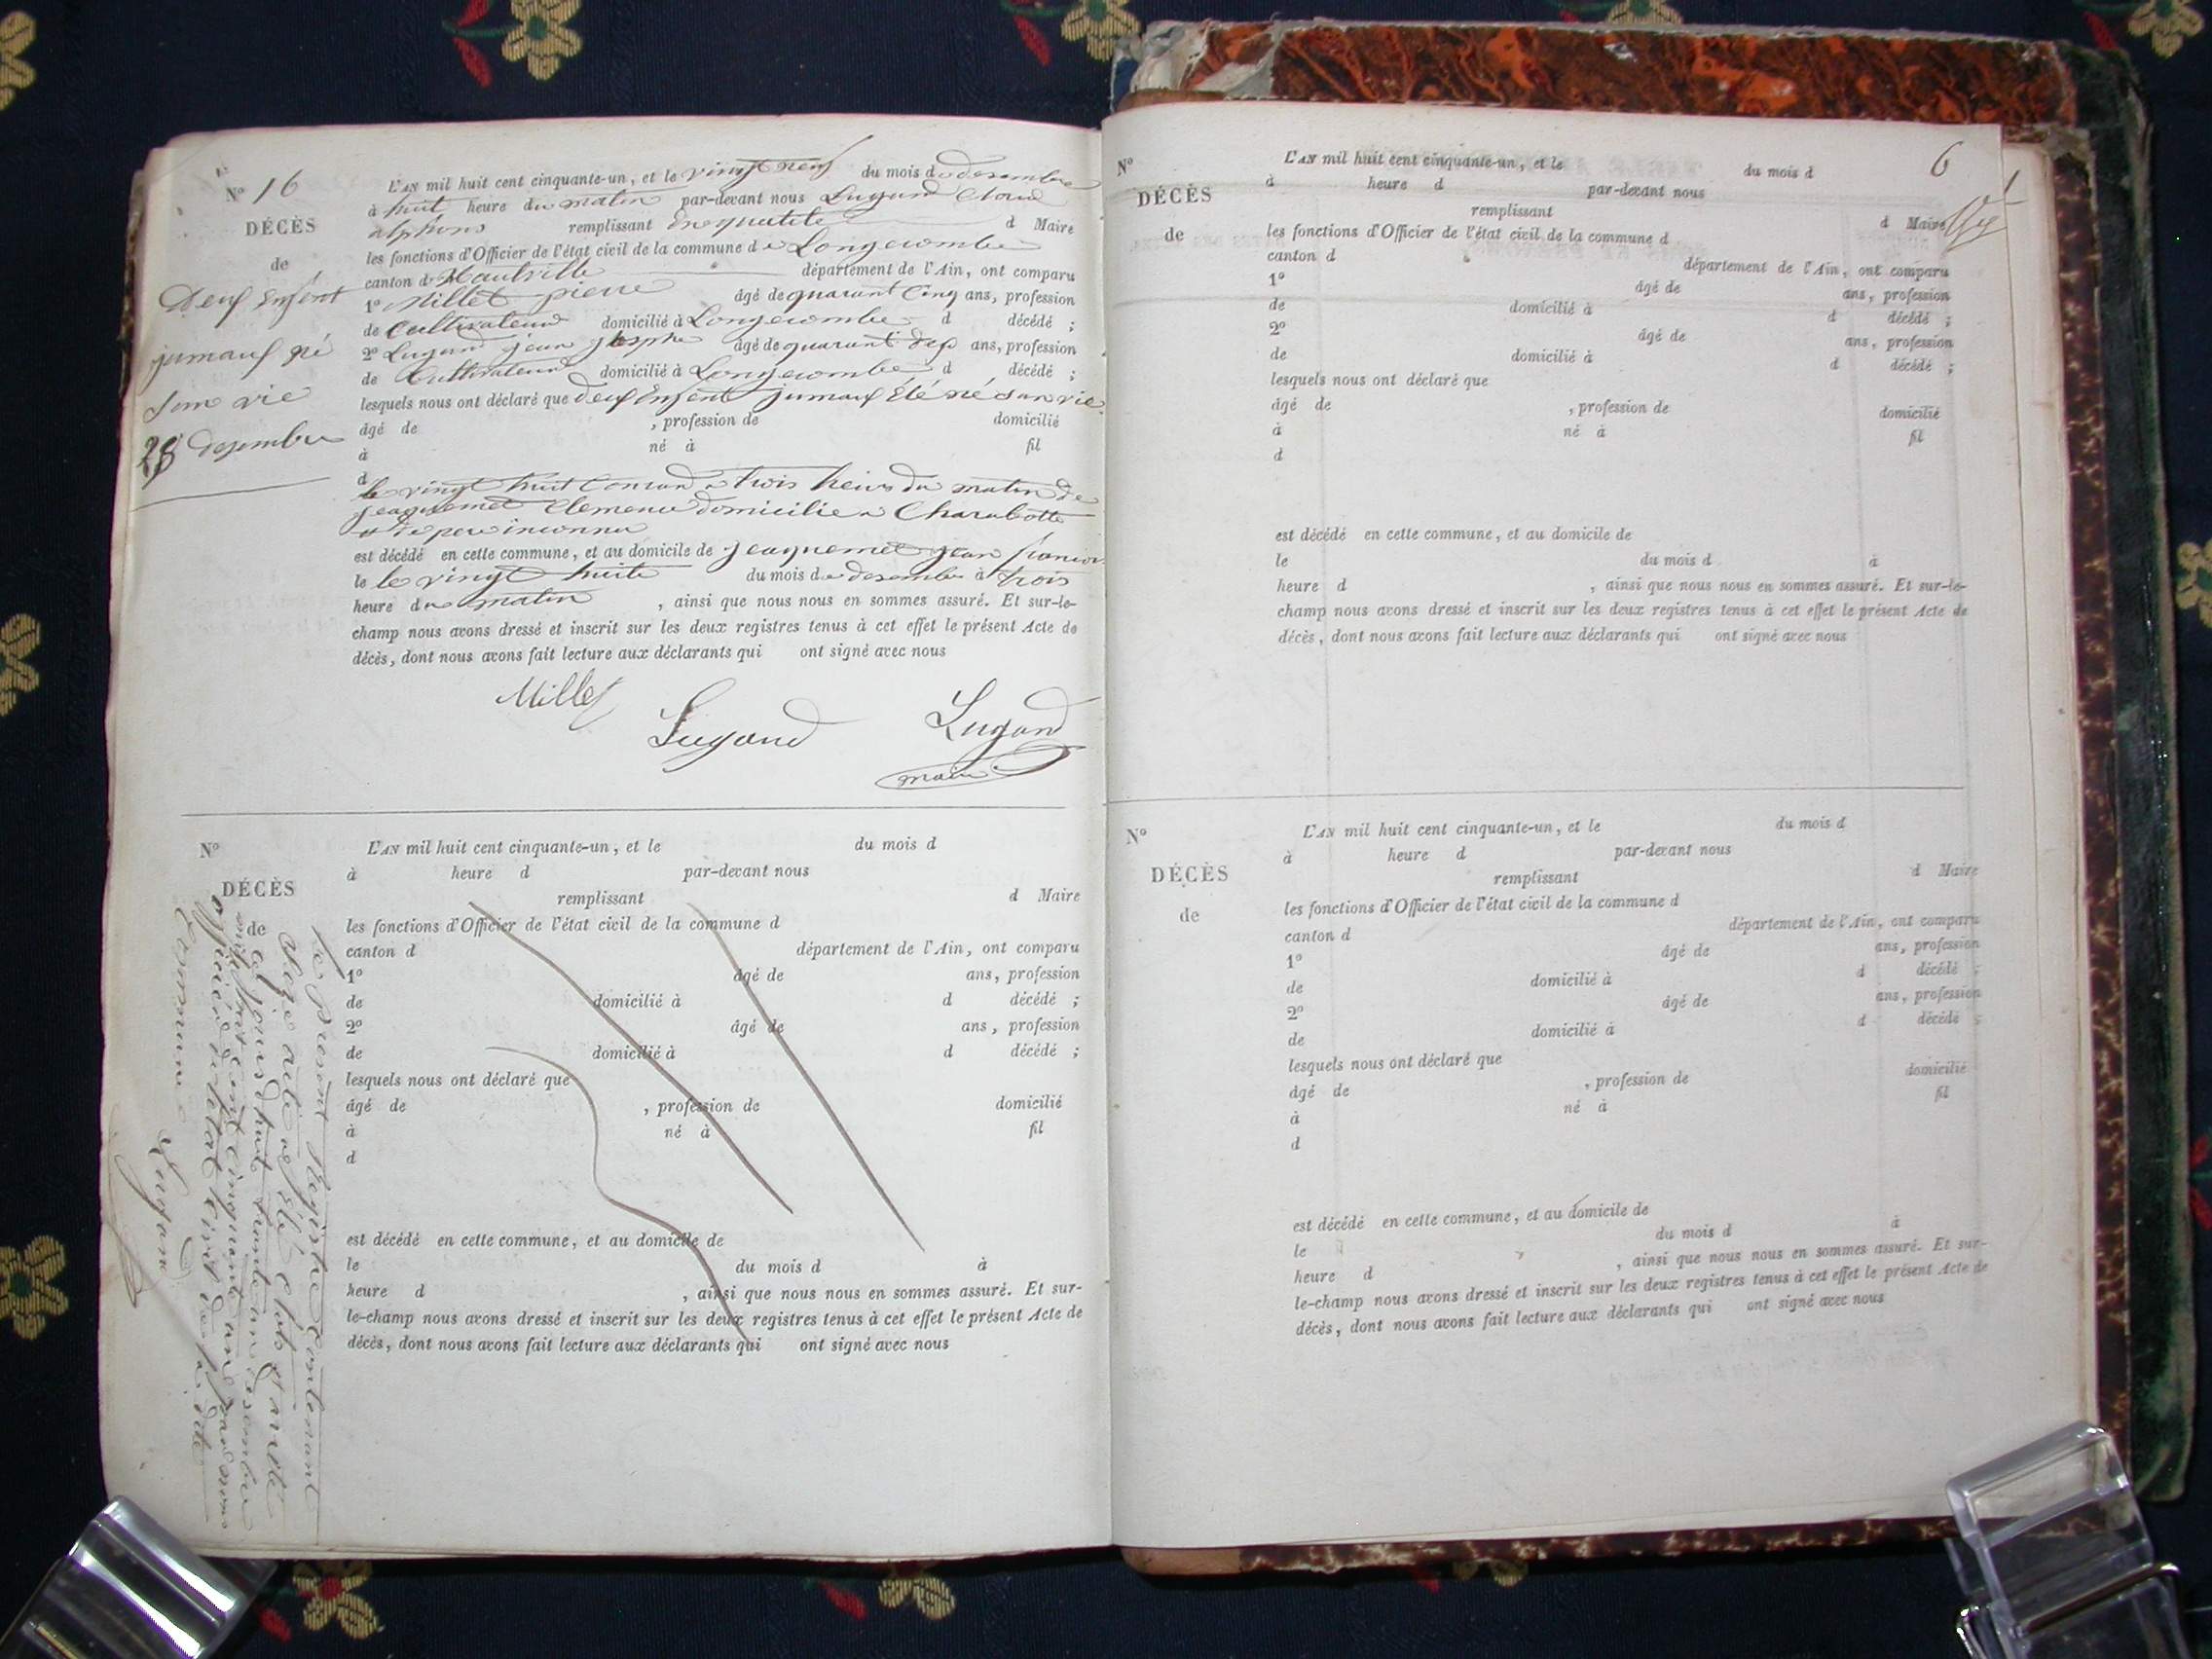 N° 16
DÉCÈS
de
Deux Enfent
jumaux né
sans vie
28 desembre
L'AN mil huit cent cinquante-un, et le vingt neuf du mois de desembre
à huit heure du matin par-devant nous Lugand Claud
alphons remplissant En quallité d Maire
les fonctions d'Officier de l'état civil de la commune de Longecombe
canton d'Hauteville département de l'Ain, ont comparu
1° Millet pierre âgé de quarant Cinq ans, profession
de Cultivateur domicilié à Longecombe d décédé ;
2° Lugand jean josephe âgé de quarant dex ans, profession
de Cultivateur domicilié à Longecombe d décédé ;
lesquels nous ont déclaré que deux Enfent jumaux Eté né san vie
âgé de , profession de domicilié
à né à fil
d
le vingt huit Courand a trois heurs du matin de
jeaquemet Clemence domicilie a Charabotte
et de pere inconnu
est décédé en cette commune, et au domicile de jeaquemet jean francois
le le vingt huite du mois de desembre à trois
heure du matin , ainsi que nous nous en sommes assuré. Et sur-le-
champ nous avons dressé et inscrit sur les deux registres tenus à cet effet le présent Acte de
décès, dont nous avons fait lecture aux déclarants qui ont signé avec nous
Millet
Lugand
Lugand
maire
N°
DÉCÈS
de
L'AN mil huit cent cinquante-un, et le du mois d
à heure d par-devant nous
remplissant d Maire
les fonctions d'Officier de l'état civil de la commune d
canton d département de l'Ain, ont comparu
1° âgé de ans, profession
de domicilié à d décédé ;
2° âgé de ans, profession
de domicilié à d décédé ;
lesquels nous ont déclaré que
âgé de , profession de domicilié
à né à fil
d
est décédé en cette commune, et au domicile de
le du mois d à
heure d , ainsi que nous nous en sommes assuré. Et sur-
le-champ nous avons dressé et inscrit sur les deux registres tenus à cet effet le présent Acte de
décès, dont nous avons fait lecture aux déclarants qui ont signé avec nous
Le present Registre Contenant
seize acte a Eté Clos et areté
cejourd'hui trante un desembre
mil huit cent cinquante un par nous
officier de l'etat civil de la ditte
Commune
Lugand
6
N°
DÉCÈS
de
L'AN mil huit cent cinquante-un, et le du mois d
à heure d par-devant nous
remplissant d Maire
les fonctions d'Officier de l'état civil de la commune d
canton d département de l'Ain, ont comparu
1° âgé de ans, profession
de domicilié à d décédé ;
2° âgé de ans, profession
de domicilié à d décédé ;
lesquels nous ont déclaré que
âgé de , profession de domicilié
à né à fil
d
est décédé en cette commune, et au domicile de
le du mois d à
heure d , ainsi que nous nous en sommes assuré. Et sur-le-
champ nous avons dressé et inscrit sur les deux registres tenus à cet effet le présent Acte de
décès, dont nous avons fait lecture aux déclarants qui ont signé avec nous
N°
DÉCÈS
de
L'AN mil huit cent cinquante-un, et le du mois d
à heure d par-devant nous
remplissant d Maire
les fonctions d'Officier de l'état civil de la commune d
canton d département de l'Ain, ont comparu
1° âgé de ans, profession
de domicilié à d décédé ;
2° âgé de ans, profession
de domicilié à d décédé ;
lesquels nous ont déclaré que
âgé de , profession de domicilié
à né à fil
d
est décédé en cette commune, et au domicile de
le du mois d à
heure d , ainsi que nous nous en sommes assuré. Et sur-
le-champ nous avons dressé et inscrit sur les deux registres tenus à cet effet le présent Acte de
décès, dont nous avons fait lecture aux déclarants qui ont signé avec nous